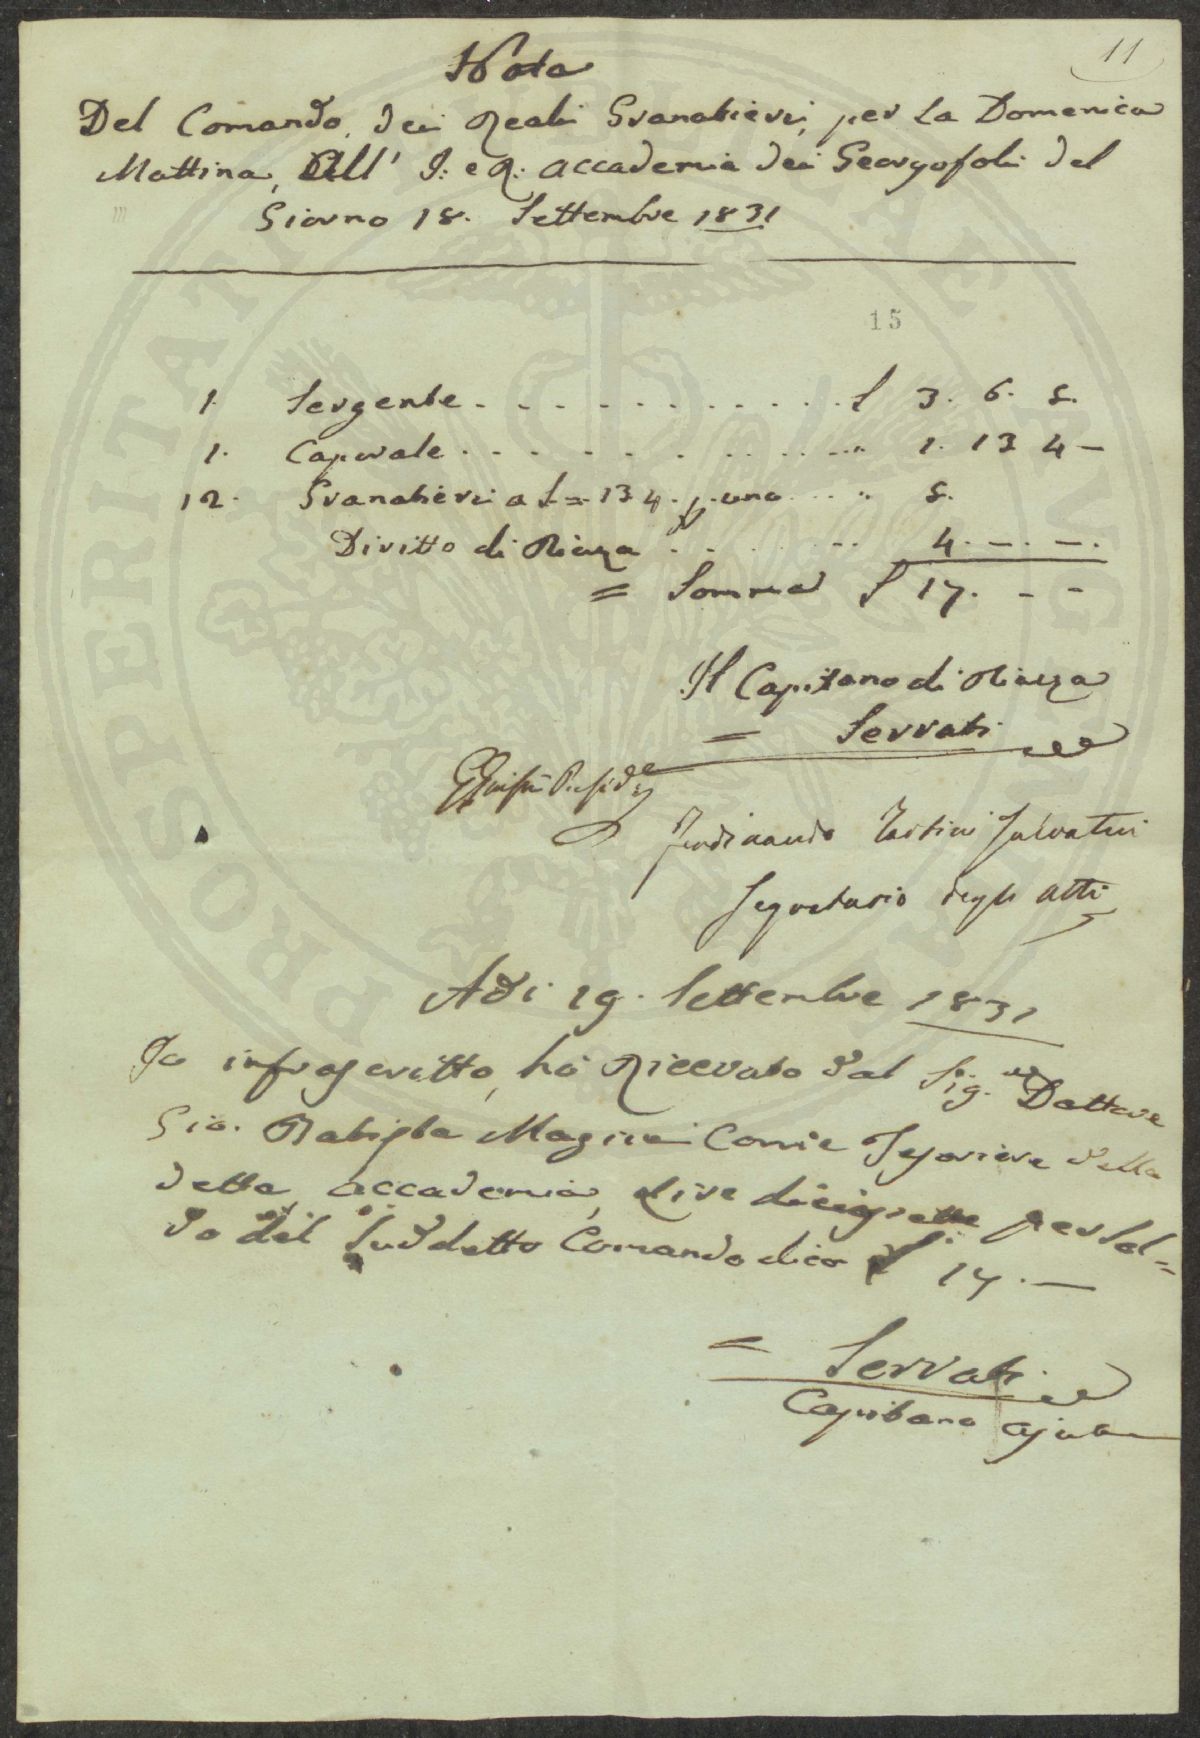 11
Nota
Del Comando, dei Reali Granatieri, per La Domenica
Mattina, All' I: e R: accademia dei Georgofoli del
Giorno 18. Settembre 1831
15
1. Sergente . . . . . . . . . . . . £ 3. 6. 8.
1. Caporale . . . . . . . . . . . . " 1. 13 4 —
12. Granatieri a £ = 13 4. p. uno . . . " 8.
Diritto di Piazza . . . . . . " 4. — . — .
= Somma £ 17. - -
Il Capitano di Piazza
= Serrati
Ferdinando Tartini Salvatici
Segretario degli atti
Adi 19. Settembre 1831
Io infrascritto, hò Ricevuto dal Sig.re Dottore
Gio. Batista Magini Come Tesoriere della
detta accademia, Lire diciasette per Sal=
do del Suddetto Comando dico £ 17. —
= Serrati
Capitano ajut
PROSPERITATI